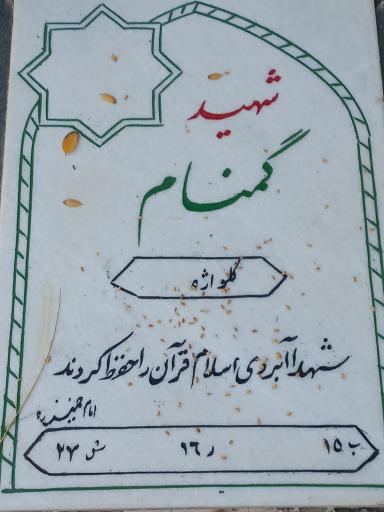 شهید
گمنام
گلواژه
شهدا آبروی اسلام قرآن را حفظ کردند
امام خمینی ره
ب ۱۵ ر ۹۶ ش ۲۷